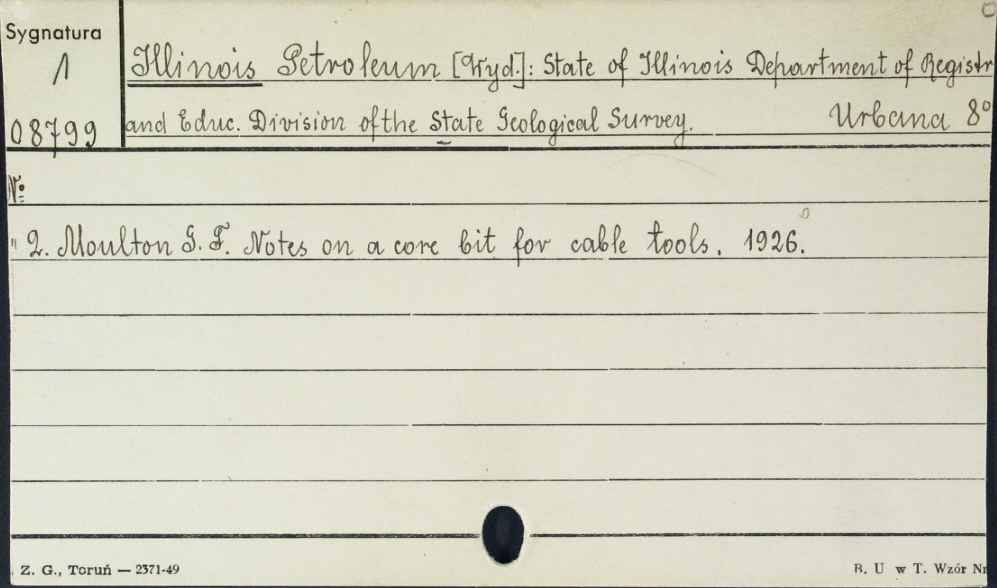 Sygnatura
1
08799
Illinois Petroleum [Wyd.]: State of Illinois Department of Registr
and Educ. Division of the State Geological Survey. Urbana 8°
№:
" 2. Moulton G. F. Notes on a core bit for cable tools. 1926.
Z. G., Toruń — 2371-49
B. U w T. Wzór Nr